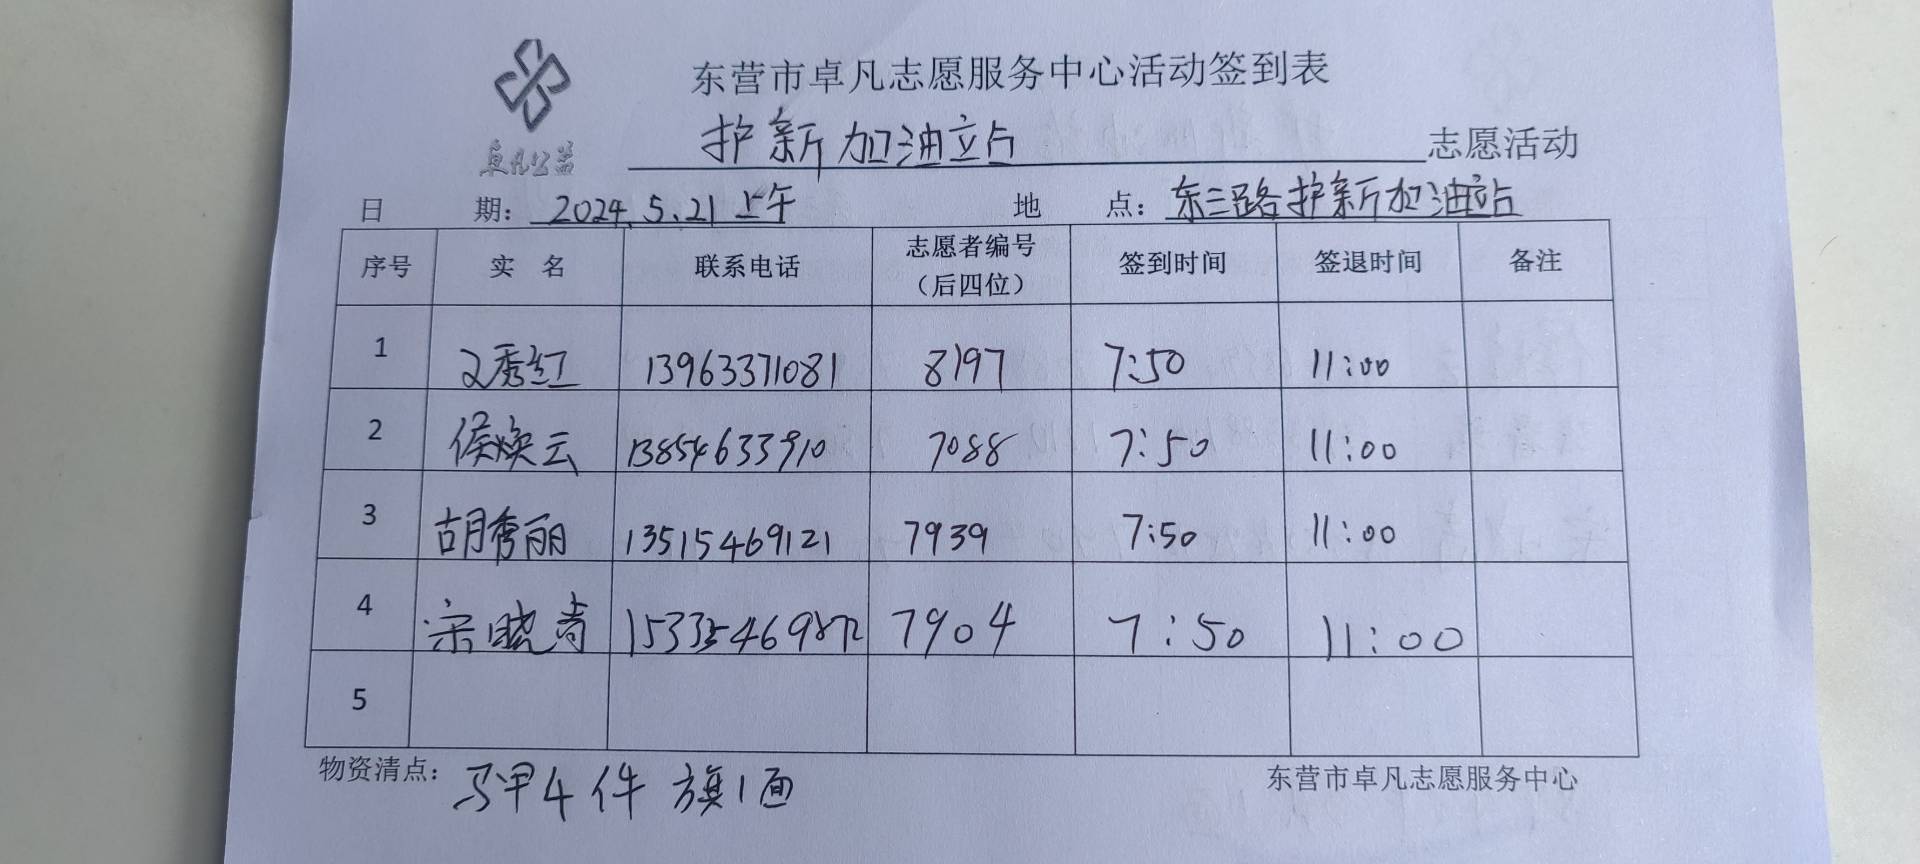 东营市卓凡志愿服务中心活动签到表
卓凡公益
护新加油立占 志愿活动
日 期: 2024.5.21上午 地 点: 东三路护新加油站
序号 实 名 联系电话 志愿者编号(后四位) 签到时间 签退时间 备注
1 秀红 13963371081 8197 7:50 11:00
2 侯焕云 13854633910 7088 7:50 11:00
3 胡秀丽 13515469121 7939 7:50 11:00
4 宋晓青 7904 7:50 11:00
5
物资清点: 马甲4件 旗1面 东营市卓凡志愿服务中心